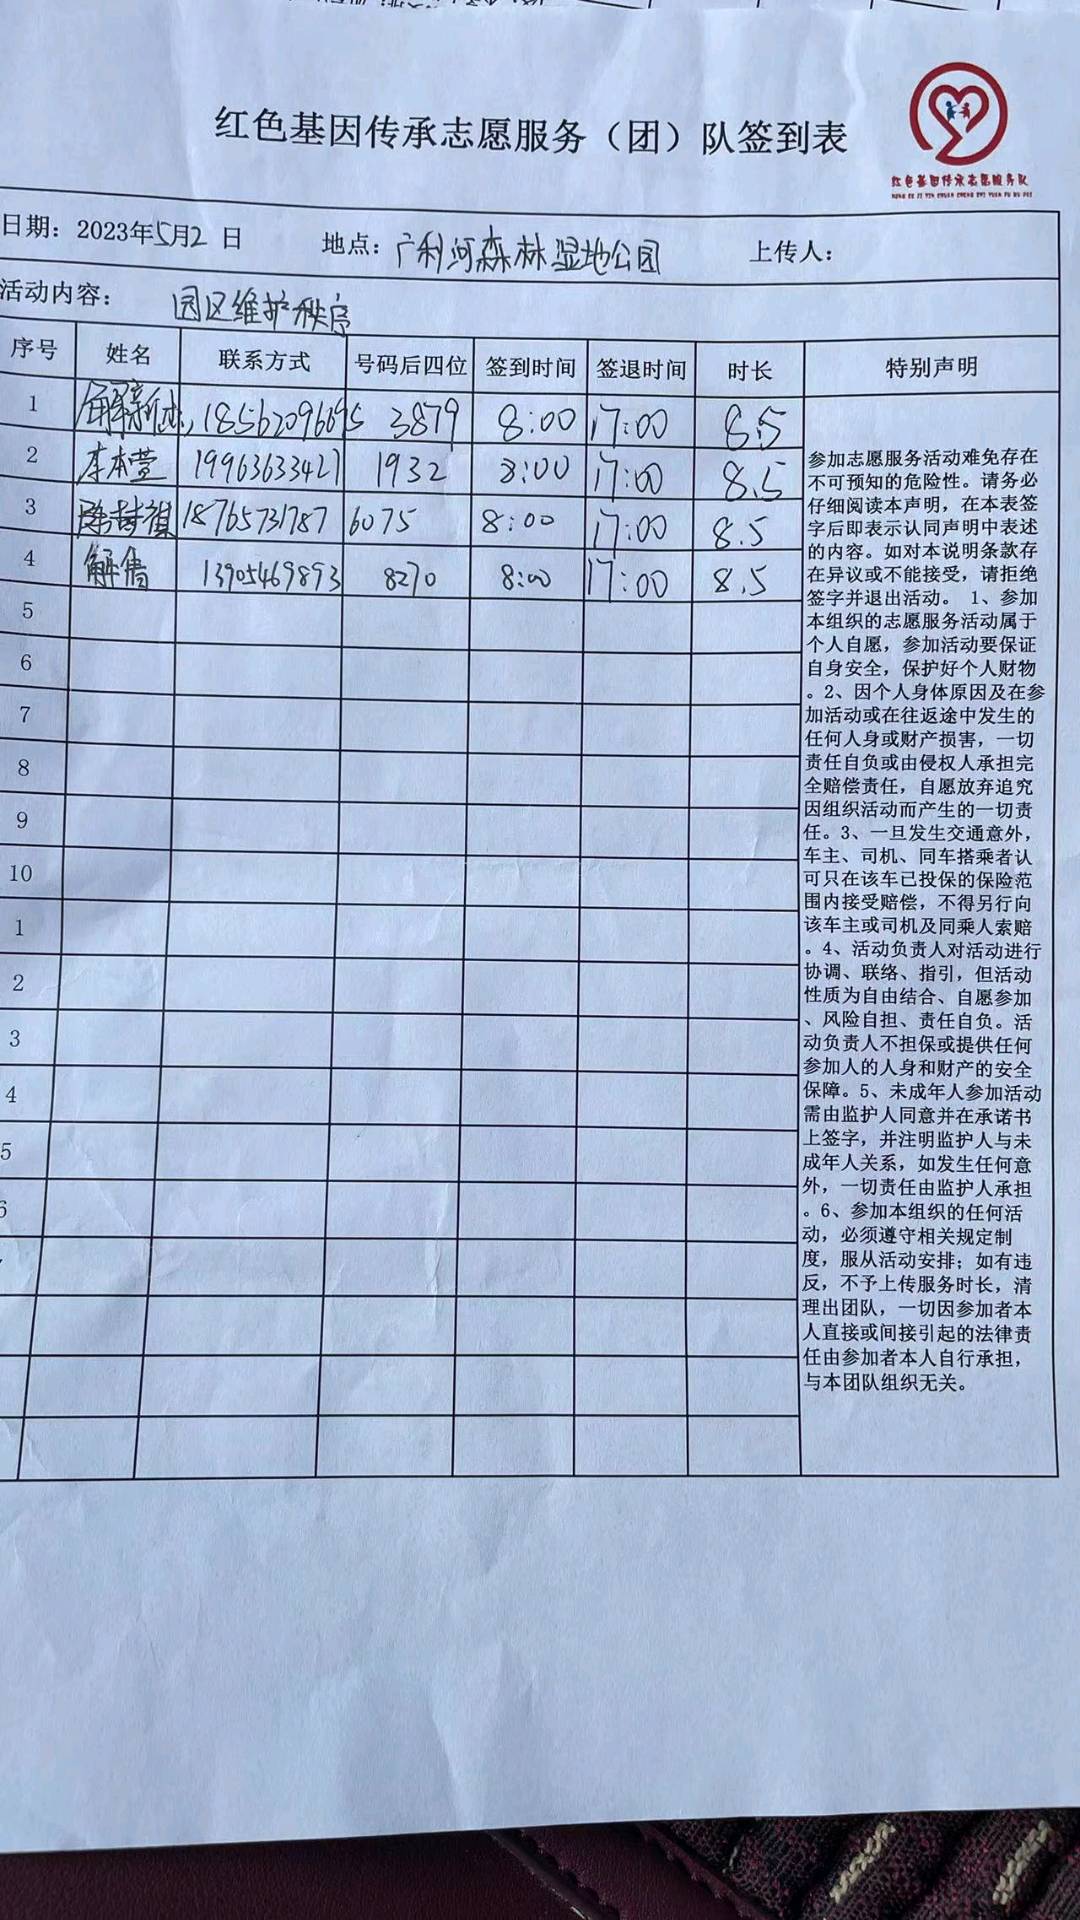 红色基因传承志愿服务（团）队签到表
红色基因传承志愿服务队
HONG SE JI YIN CHUAN CHENG ZHI YUAN FU WU DUI
日期：2023年5月2 日 地点：广利河森林湿地公园 上传人：
活动内容： 园区维护秩序
序号 姓名 联系方式 号码后四位 签到时间 签退时间 时长 特别声明
1 解新 18562096695 3879 8:00 17:00 8.5
2 李本莹 19963633427 1932 8:00 17:00 8.5
3 18765731787 6075 8:00 17:00 8.5
4 解售 13905469893 8270 8:00 17:00 8.5
5
6
7
8
9
10
1
2
3
4
5
6
参加志愿服务活动难免存在
不可预知的危险性。请务必
仔细阅读本声明，在本表签
字后即表示认同声明中表述
的内容。如对本说明条款存
在异议或不能接受，请拒绝
签字并退出活动。 1、参加
本组织的志愿服务活动属于
个人自愿，参加活动要保证
自身安全，保护好个人财物
。2、因个人身体原因及在参
加活动或在往返途中发生的
任何人身或财产损害，一切
责任自负或由侵权人承担完
全赔偿责任，自愿放弃追究
因组织活动而产生的一切责
任。3、一旦发生交通意外，
车主、司机、同车搭乘者认
可只在该车已投保的保险范
围内接受赔偿，不得另行向
该车主或司机及同乘人索赔
。4、活动负责人对活动进行
协调、联络、指引，但活动
性质为自由结合、自愿参加
、风险自担、责任自负。活
动负责人不担保或提供任何
参加人的人身和财产的安全
保障。5、未成年人参加活动
需由监护人同意并在承诺书
上签字，并注明监护人与未
成年人关系，如发生任何意
外，一切责任由监护人承担
。6、参加本组织的任何活
动，必须遵守相关规定制
度，服从活动安排；如有违
反，不予上传服务时长，清
理出团队，一切因参加者本
人直接或间接引起的法律责
任由参加者本人自行承担，
与本团队组织无关。